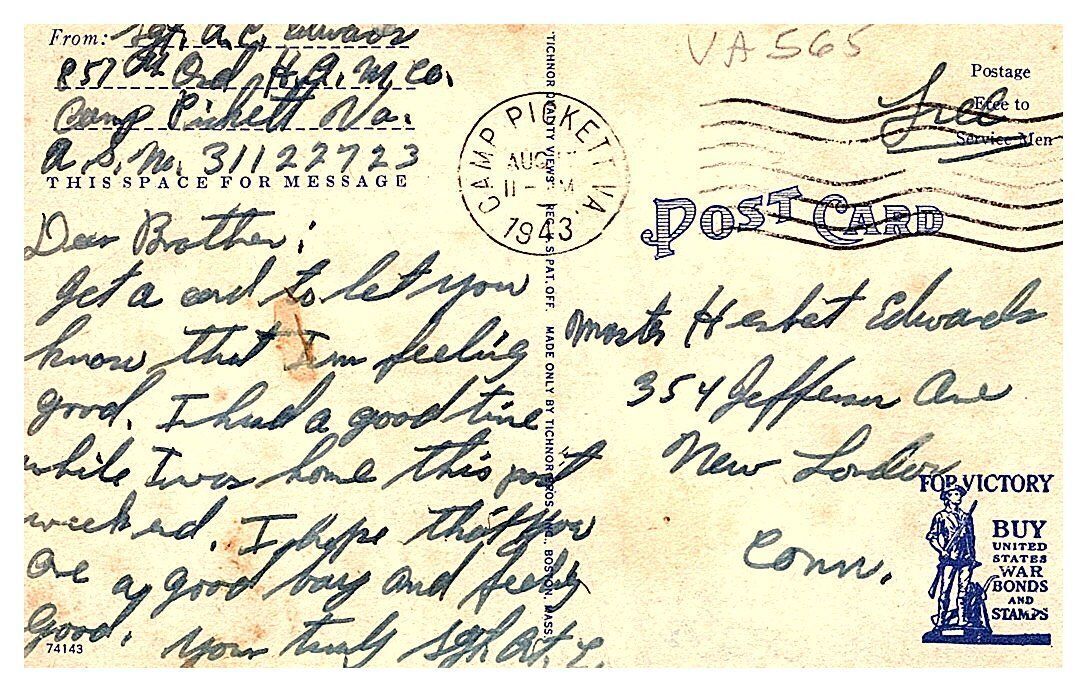 From: Sgt. A. C. Edwards
857th Ord. H. A. M. Co.
Camp Pickett Va.
A. S. No. 31122723
THIS SPACE FOR MESSAGE
Dear Brother:
Get a card to let you
know that I'm feeling
good. I had a good time
while I was home this past
weekend. I hope that you
are a good boy and feeling
good. Your truly Sgt Art. E.
74143
TICHNOR QUALITY VIEWS REG. U. S. PAT. OFF. MADE ONLY BY TICHNOR BROS. INC. BOSTON, MASS.
CAMP PICKETT, VA.
AUG
11 - M
1943
VA 565
Free
Postage
Free to
Service Men
POST CARD
Master Herbert Edwards
354 Jefferson Ave
New London
Conn.
FOR VICTORY
BUY
UNITED
STATES
WAR
BONDS
AND
STAMPS